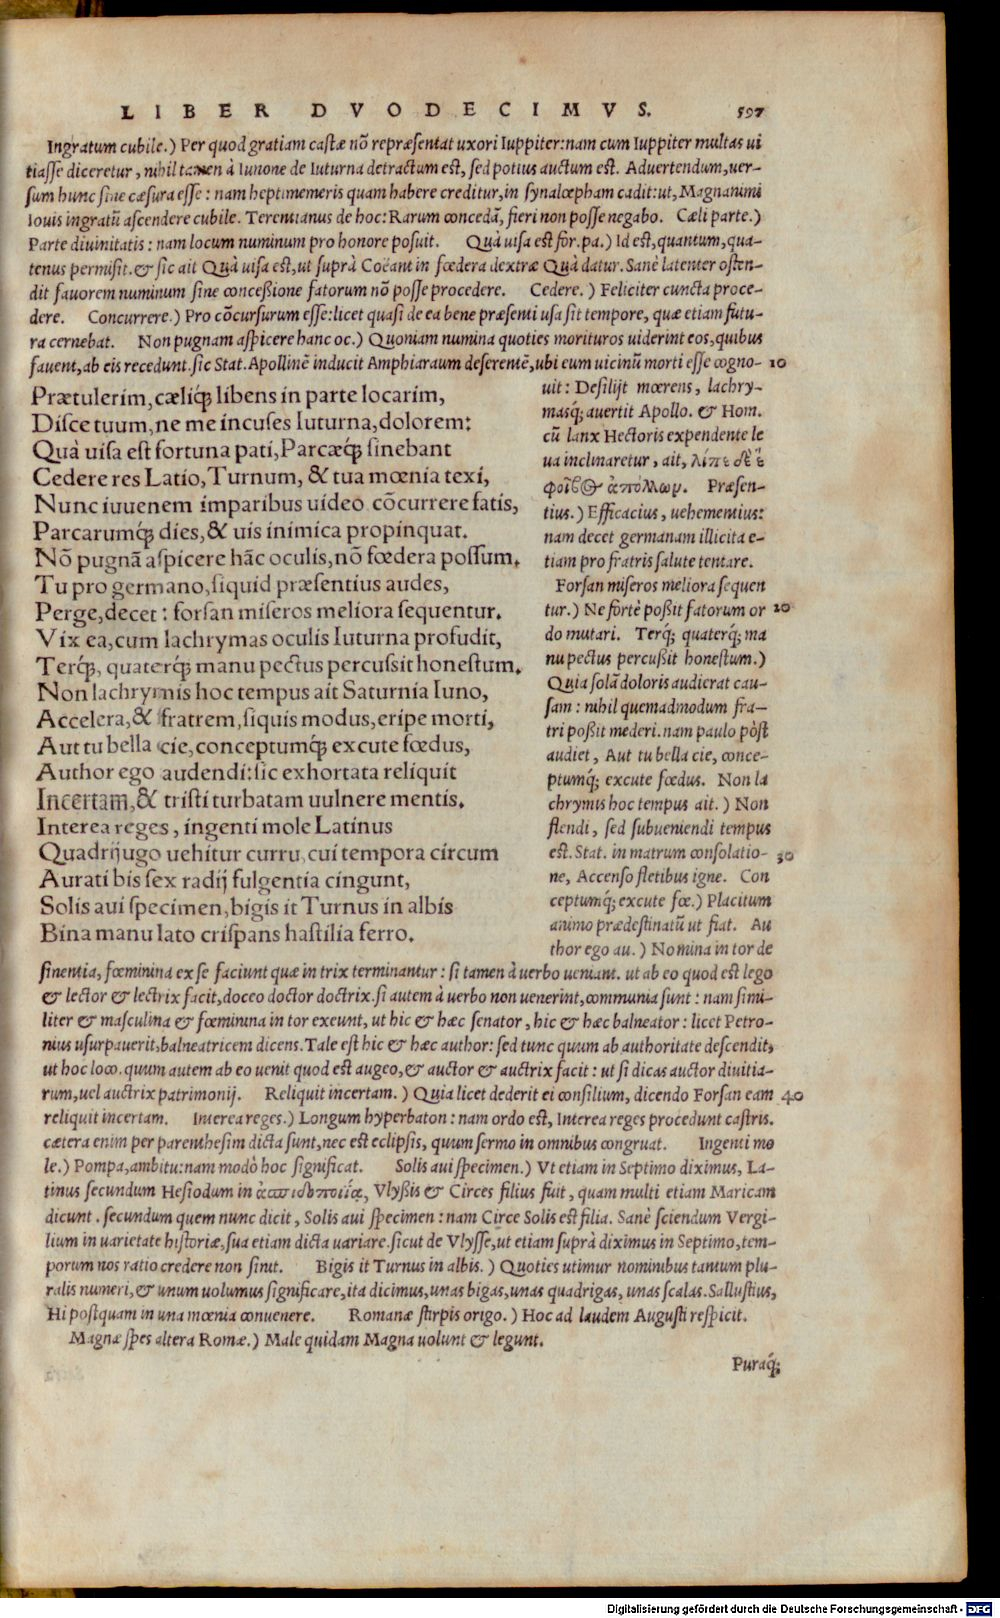 LIBER DVODECIMVS. 597
Ingratum cubile.) Per quod gratiam castæ nõ repræsentat uxori Iuppiter: nam cum Iuppiter multas ui
tiasse diceretur, nihil tamen à Iunone de Iuturna detractum est, sed potius auctum est. Aduertendum, uer-
sum hunc sine cæsura esse: nam heptimemeris quam habere creditur, in synalœpham cadit: ut, Magnanimi
Iouis ingratũ ascendere cubile. Terentianus de hoc: Rarum concedã, fieri non posse negabo. Cæli parte.)
Parte diuinitatis: nam locum numinum pro honore posuit. Quà uisa est for. pa.) Id est, quantum, qua-
tenus permisit. & sic ait Quà uisa est, ut suprà Coëant in fœdera dextræ Quà datur. Sanè latenter osten-
dit fauorem numinum sine conceßione fatorum nõ posse procedere. Cedere.) Feliciter cuncta proce-
dere. Concurrere.) Pro cõcursurum esse: licet quasi de ea bene præsenti usa sit tempore, quæ etiam futu-
ra cernebat. Non pugnam aspicere hanc oc.) Quoniam numina quoties morituros uiderint eos, quibus
fauent, ab eis recedunt. sic Stat. Apollinẽ inducit Amphiaraum deserentẽ, ubi eum uicinũ morti esse cogno- 10
Prætulerim, cæliq́; libens in parte locarim,
Disce tuum, ne me incuses Iuturna, dolorem:
Quà uisa est fortuna pati, Parcæq́; sinebant
Cedere res Latio, Turnum, & tua mœnia texi,
Nunc iuuenem imparibus uideo cõcurrere fatis,
Parcarumq́; dies, & uis inimica propinquat.
Nõ pugnã aspicere hãc oculis, nõ fœdera possum.
Tu pro germano, siquid præsentius audes,
Perge, decet: forsan miseros meliora sequentur.
Vix ea, cum lachrymas oculis Iuturna profudit,
Terq́;, quaterq́; manu pectus percussit honestum.
Non lachrymis hoc tempus ait Saturnia Iuno,
Accelera, & fratrem, siquis modus, eripe morti,
Aut tu bella cie, conceptumq́; excute fœdus,
Author ego audendi: sic exhortata reliquit
Incertam, & tristi turbatam uulnere mentis.
Interea reges, ingenti mole Latinus
Quadrijugo uehitur curru, cui tempora circum
Aurati bis sex radij fulgentia cingunt,
Solis aui specimen, bigis it Turnus in albis
Bina manu lato crispans hastilia ferro.
uit: Desilijt mœrens, lachry-
masq́; auertit Apollo. & Hom.
cũ lanx Hectoris expendente le
ua inclinaretur, ait, λίπε δέ ἑ
φοῖβος ἀπόλλων. Præsen-
tius.) Efficacius, uehementius:
nam decet germanam illicita e-
tiam pro fratris salute tentare.
Forsan miseros meliora sequen
tur.) Ne fortè poßit fatorum or 20
do mutari. Terq́; quaterq́; ma
nu pectus percußit honestum.)
Quia solã doloris audierat cau-
sam: nihil quemadmodum fra-
tri poßit mederi. nam paulo pòst
audiet, Aut tu bella cie, conce-
ptumq́; excute fœdus. Non la
chrymis hoc tempus ait.) Non
flendi, sed subueniendi tempus
est. Stat. in matrum consolatio- 30
ne, Accenso fletibus igne. Con
ceptumq́; excute fœ.) Placitum
animo prædestinatũ ut fiat. Au
thor ego au.) Nomina in tor de
sinentia, fœminina ex se faciunt quæ in trix terminantur: si tamen à uerbo ueniant. ut ab eo quod est lego
& lector & lectrix facit, doceo doctor doctrix. si autem à uerbo non uenerint, communia sunt: nam simi-
liter & masculina & fœminina in tor exeunt, ut hic & hæc senator, hic & hæc balneator: licet Petro-
nius usurpauerit, balneatricem dicens. Tale est hic & hæc author: sed tunc quum ab authoritate descendit,
ut hoc loco. quum autem ab eo uenit quod est augeo, & auctor & auctrix facit: ut si dicas auctor diuitia-
rum, uel auctrix patrimonij. Reliquit incertam.) Quia licet dederit ei consilium, dicendo Forsan eam 40
reliquit incertam. Interea reges.) Longum hyperbaton: nam ordo est, Interea reges procedunt castris.
cætera enim per parenthesim dicta sunt, nec est eclipsis, quum sermo in omnibus congruat. Ingenti mo
le.) Pompa, ambitu: nam modò hoc significat. Solis aui specimen.) Vt etiam in Septimo diximus, La-
tinus secundum Hesiodum in ἀσπιδοποιίᾳ, Vlyßis & Circes filius fuit, quam multi etiam Maricam
dicunt. secundum quem nunc dicit, Solis aui specimen: nam Circe Solis est filia. Sanè sciendum Vergi-
lium in uarietate historiæ, sua etiam dicta uariare. sicut de Vlysse, ut etiam suprà diximus in Septimo, tem-
porum nos ratio credere non sinit. Bigis it Turnus in albis.) Quoties utimur nominibus tantum plu-
ralis numeri, & unum uolumus significare, ita dicimus, unas bigas, unas quadrigas, unas scalas. Sallustius,
Hi postquam in una mœnia conuenere. Romanæ stirpis origo.) Hoc ad laudem Augusti respicit.
Magnæ spes altera Romæ.) Male quidam Magna uolunt & legunt.
Puraq́;
Digitalisierung gefördert durch die Deutsche Forschungsgemeinschaft - DFG